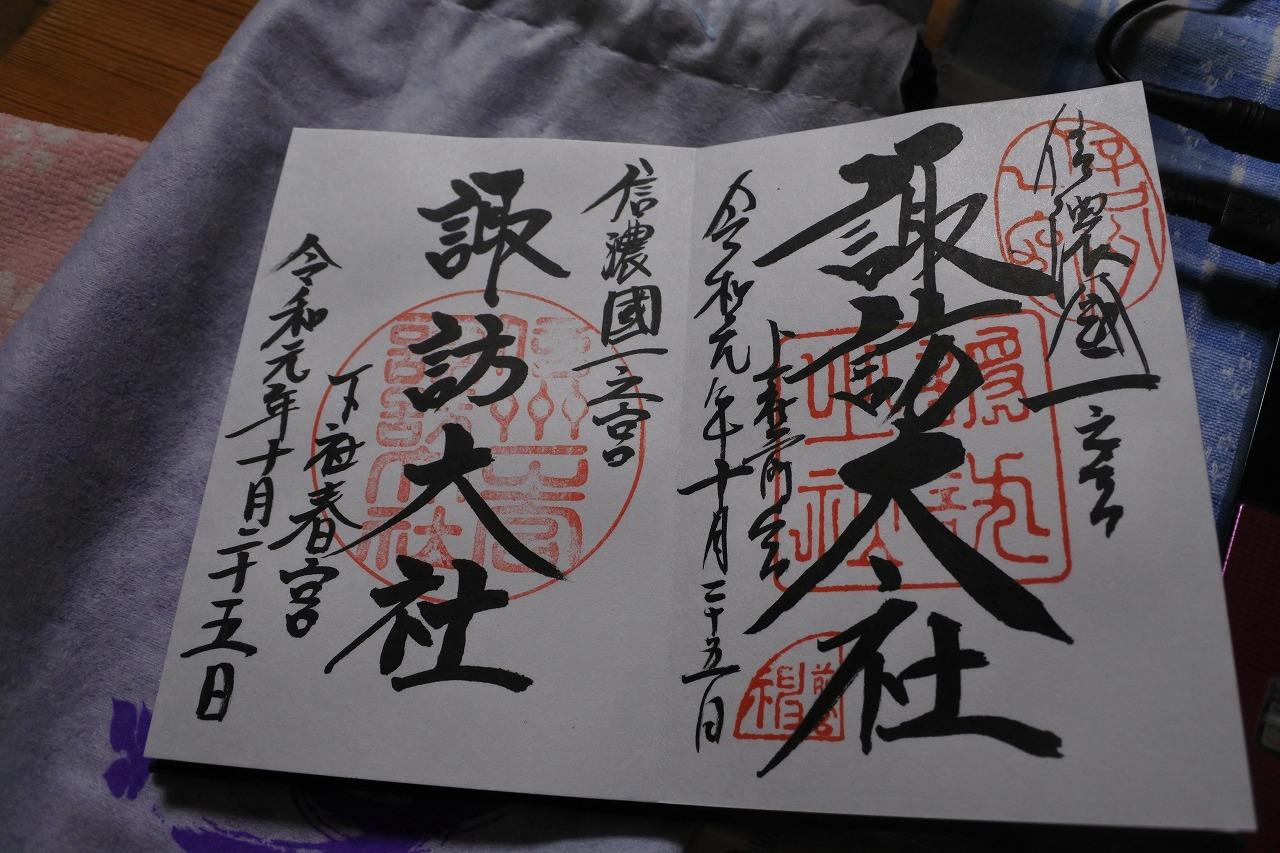 信濃國一之宮
諏訪大社
上社前宮
令和元年十月二十五日
信濃國一之宮
諏訪大社
下社春宮
令和元年十月二十五日